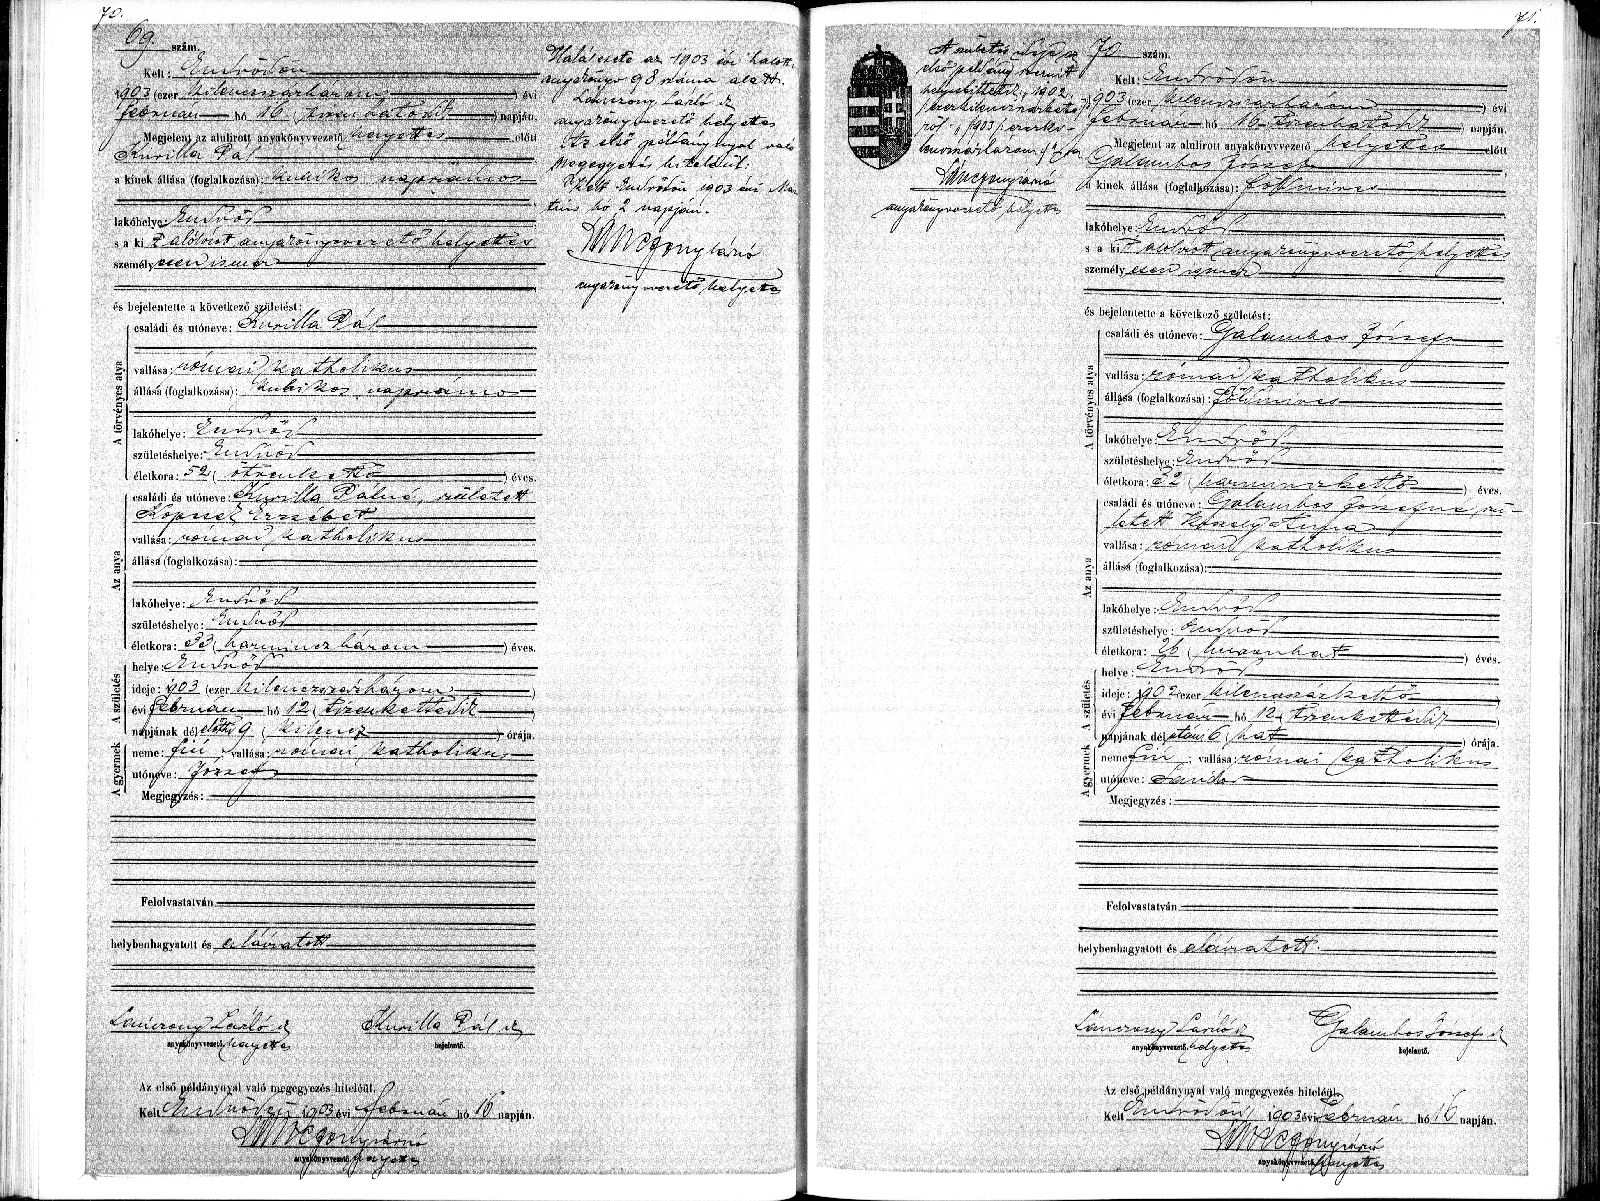 70.
69. szám.
Kelt: Endrődön
1903 (ezer kilenczszázhárom) évi
február hó 16 (tizenhatodik) napján.
Megjelent az alulirott anyakönyvvezető helyettes előtt
Kurilla Pál
a kinek állása (foglalkozása): kubikos napszámos
lakóhelye: Endrőd
s a kit alólirt anyakönyvvezető helyettes
személyesen ismer
és bejelentette a következő születést:
A törvényes atya
családi és utóneve: Kurilla Pál
vallása: római katholikus
állása (foglalkozása): kubikos, napszámos
lakóhelye: Endrőd
születéshelye: Endrőd
életkora: 52 (ötvenkettő) éves.
Az anya
családi és utóneve: Kurilla Pálné, született
Erzsébet
vallása: római katholikus
állása (foglalkozása):
lakóhelye: Endrőd
születéshelye: Endrőd
életkora: 33 (harminczhárom) éves.
A születés
helye: Endrőd
ideje: 1903 (ezer kilenczszázhárom)
évi február hó 12 (tizenkettedik)
napjának dél előtti 9 (kilencz) órája.
A gyermek
neme: fiú, vallása: római katholikus
utóneve: József
Megjegyzés:
Felolvastatván
helybenhagyatott és aláiratott
Lanczony László k Kurilla Pál k
anyakönyvvezető, helyettes bejelentő.
Az első példánynyal való megegyezés hiteléül.
Kelt Endrődön, 1903 évi február hó 16 napján.
anyakönyvvezető, helyettes
Halálesete az 1903 évi halott.
anyakönyv 98 száma alatt
Lanczony László k
anyakönyvvezető helyettes
Az első példánynyal való
megegyezés hiteléül.
Kelt Endrődön 1903 évi Már
tius hó 2 napján.
anyakönyvvezető, helyettes
71.
A születés ideje az
első példány szerint
helyesbittetik, 1902,
/:ezerkilenczszázkettő:/
ről "1903 /:ezerki-
lenczszázhárom:/
anyakönyvvezető, helyettes
70 szám.
Kelt: Endrődön
1903 (ezer kilenczszázhárom) évi
február hó 16 (tizenhatodik) napján.
Megjelent az alulirott anyakönyvvezető helyettes előtt
Galambos József
a kinek állása (foglalkozása): földmives
lakóhelye: Endrőd
s a kit alólirott anyakönyvvezető helyettes
személyesen ismer
és bejelentette a következő születést:
A törvényes atya
családi és utóneve: Galambos József
vallása: római katholikus
állása (foglalkozása): földmives
lakóhelye: Endrőd
születéshelye: Endrőd
életkora: 32 (harminczkettő) éves.
Az anya
családi és utóneve: Galambos Józsefné, szü-
letett
vallása: római katholikus
állása (foglalkozása):
lakóhelye: Endrőd
születéshelye: Endrőd
életkora: 26 (huszonhat) éves.
A születés
helye: Endrőd
ideje: 1902 (ezer kilenczszázkettő
évi február hó 12 (tizenkettedik
napjának dél utáni 6 (hat) órája.
A gyermek
neme: fiú, vallása: római katholikus
utóneve: Sándor
Megjegyzés:
Felolvastatván
helybenhagyatott és aláiratott.
Lanczony László k Galambos József k
anyakönyvvezető, helyettes bejelentő.
Az első példánynyal való megegyezés hiteléül.
Kelt Endrődön, 1903 évi február hó 16 napján.
anyakönyvvezető, helyettes